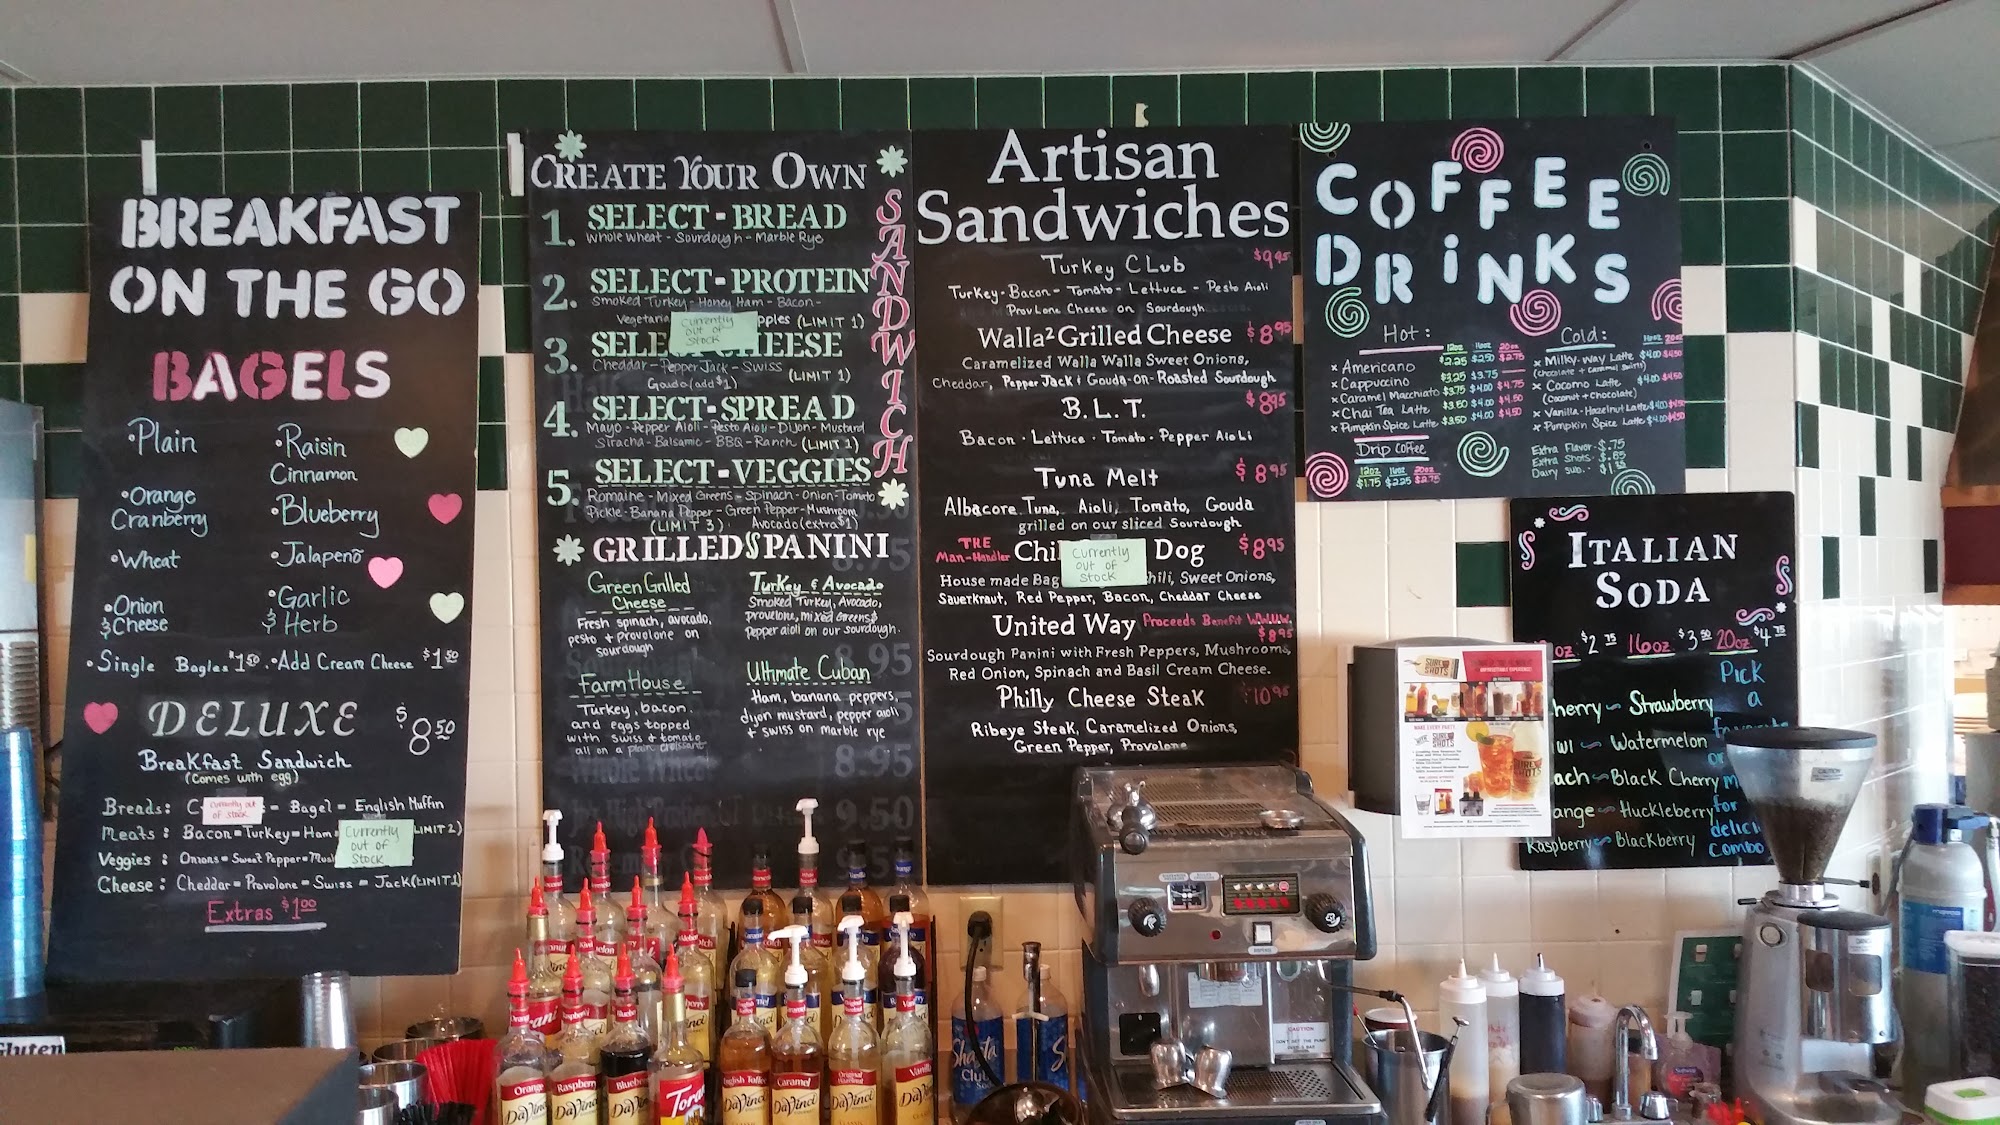 BREAKFAST
ON THE GO
BAGELS
•Plain
•Raisin
Cinnamon
•Orange
Cranberry
•Blueberry
•Wheat
•Jalapeño
•Onion
& Cheese
•Garlic
& Herb
•Single Bagles $1.50
•Add Cream Cheese $1.50
DELUXE
$8.50
Breakfast Sandwich
(Comes with egg)
Breads: C
Currently out
of stock
- Bagel - English Muffin
Meats: Bacon - Turkey - Ham
Currently
out of
stock
LIMIT 2)
Veggies: Onions - Sweet Pepper - Mush
Cheese: Cheddar - Provolone - Swiss - Jack (LIMIT 1)
Extras $1.00
CREATE YOUR OWN
SANDWICH
1. SELECT-BREAD
Whole Wheat - Sourdough - Marble Rye
2. SELECT-PROTEIN
Smoked Turkey - Honey Ham - Bacon -
Vegeteria
Currently
out of
stock
pples (LIMIT 1)
3. SELE CHEESE
Cheddar - Pepper Jack - Swiss
Gouda (add $1) (LIMIT 1)
4. SELECT-SPREAD
Mayo - Pepper Aioli - Pesto Aioli - Dijon - Mustard
Siracha - Balsamic - BBQ - Ranch (LIMIT 1)
5. SELECT-VEGGIES
Romaine - Mixed Greens - Spinach - Onion - Tomato
Pickle - Banana Pepper - Green Pepper - Mushroom
(LIMIT 3) Avocado (extra $1)
GRILLED PANINI
Green Grilled
Cheese
Fresh spinach, avocado,
pesto + provolone on
sourdough
Turkey & Avocado
Smoked Turkey, Avocado,
provelone, mixed Greens &
pepper aioli on our sourdough.
Farm House
Turkey, bacon,
and eggs topped
with swiss + tomato
all on a plain croissant
Ultimate Cuban
Ham, banana peppers,
dijon mustard, pepper aioli
+ swiss on marble rye
Artisan
Sandwiches
Turkey Club $9.95
Turkey - Bacon - Tomato - Lettuce - Pesto Aioli
Provlone Cheese on Sourdough
Walla² Grilled Cheese $8.95
Caramelized Walla Walla Sweet Onions,
Cheddar, Pepper Jack & Gouda-on-Roasted Sourdough
B.L.T. $8.95
Bacon · Lettuce · Tomato · Pepper Aioli
Tuna Melt $8.95
Albacore Tuna, Aioli, Tomato, Gouda
grilled on our sliced Sourdough
THE
Man-Handler
Chi Dog $8.95
Currently
out of
stock
House made Bag hili, Sweet Onions,
Sauerkraut, Red Pepper, Bacon, Cheddar Cheese
United Way Proceeds Benefit WWUW.
$8.95
Sourdough Panini with Fresh Peppers, Mushrooms,
Red Onion, Spinach and Basil Cream Cheese.
Philly Cheese Steak $10.95
Ribeye Steak, Caramelized Onions,
Green Pepper, Provolone
COFFEE
DRiNKS
Hot:
12oz 16oz 20oz
× Americano $2.25 $2.50 $2.75
× Cappuccino $3.25 $3.75
× Caramel Macchiato $3.75 $4.00 $4.75
× Chai Tea Latte $3.50 $4.00 $4.50
× Pumpkin Spice Latte $3.50 $4.00 $4.50
Drip Coffee
12oz 16oz 20oz
$1.75 $2.25 $2.75
Cold:
16oz 20oz
× Milky-way Latte $4.00 $4.50
(chocolate + caramel swirls)
× Cocomo Latte $4.00 $4.50
(Coconut + Chocolate)
× Vanilla-Hazelnut Latte $4.00 $4.50
× Pumpkin Spice Latte $4.00 $4.50
Extra Flavor- $.75
Extra Shots- $.85
Dairy sub.-
ITALIAN
SODA
oz $2.75 16oz $3.50 20oz $4.75
herry ~ Strawberry
iwi ~ Watermelon
ach ~ Black Cherry
ange ~ Huckleberry
Raspberry ~ Blackberry
Pick
a
or
for
delici
combo
SURF
SHOTS
Gluten
Orange
DaVinci
Raspberry
DaVinci
Blueberry
DaVinci
Torani
English Toffee
DaVinci
Caramel
DaVinci
Original
Hazelnut
DaVinci
Vanilla
DaVinci
Shasta
Club
CAUTION